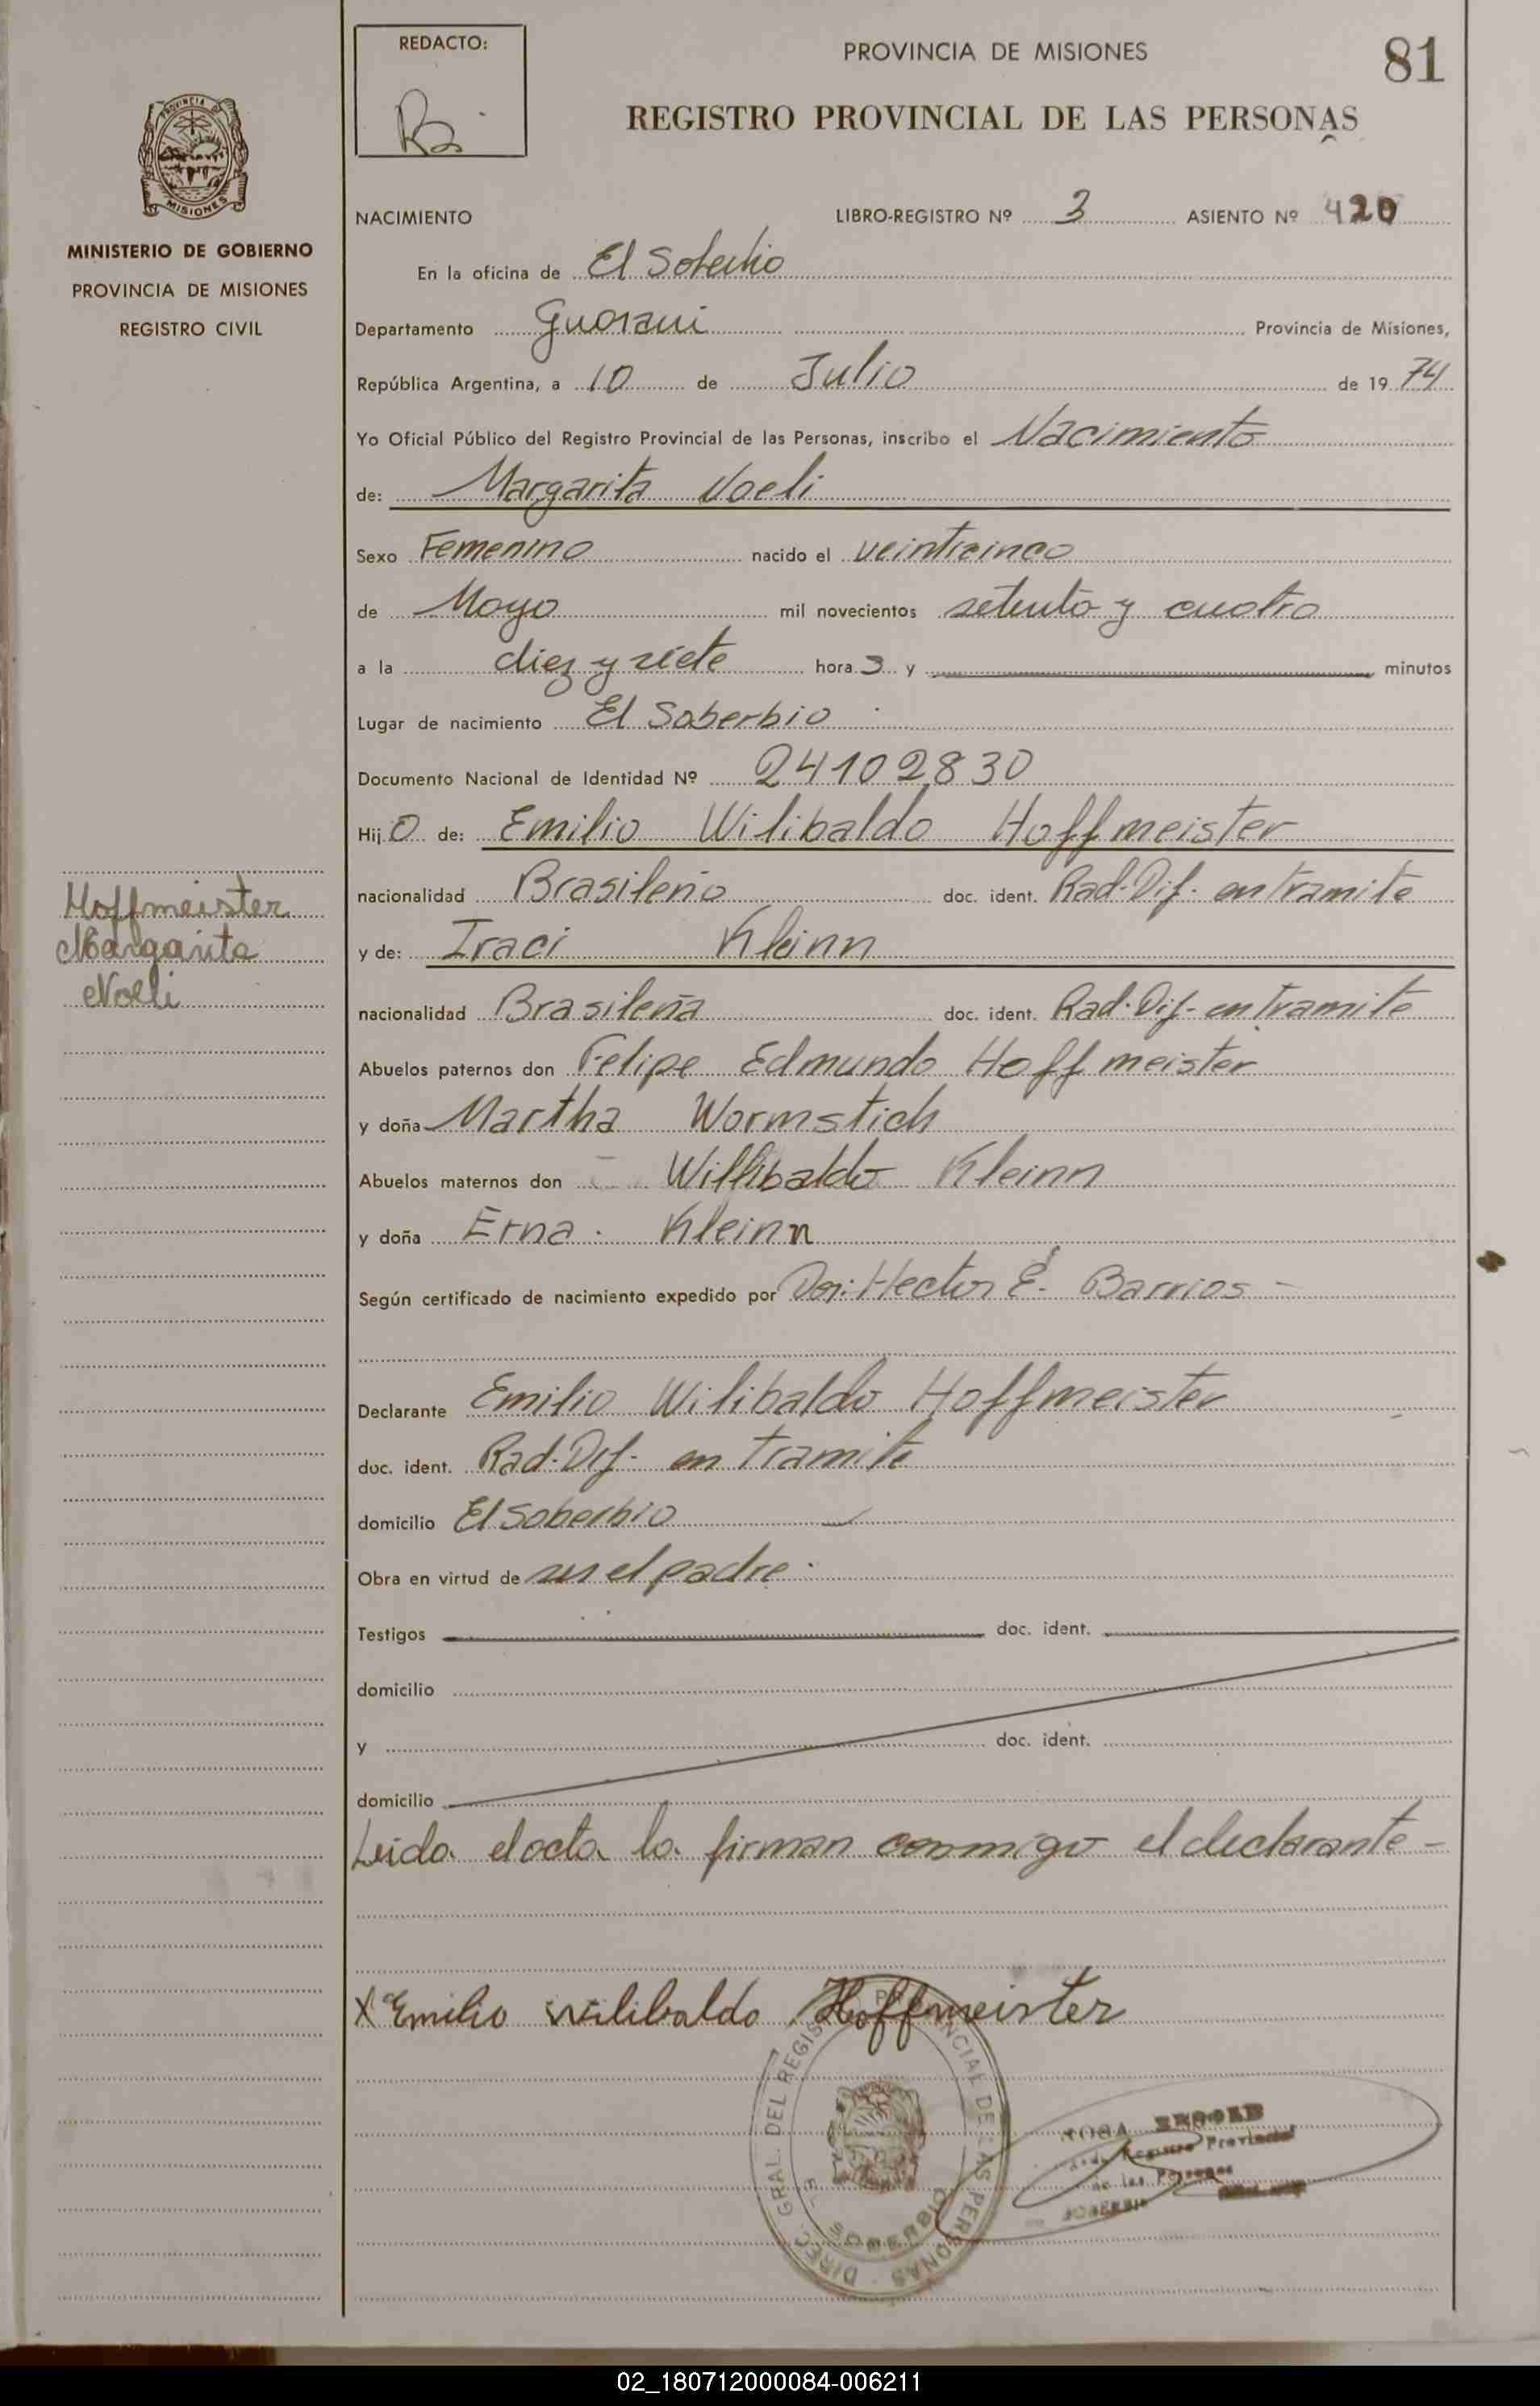 REDACTO:
PROVINCIA DE MISIONES
81
REGISTRO PROVINCIAL DE LAS PERSONAS
MISIONES
MINISTERIO DE GOBIERNO
PROVINCIA DE MISIONES
REGISTRO CIVIL
NACIMIENTO LIBRO-REGISTRO Nº 3 ASIENTO Nº 420
En la oficina de El Soberbio
Departamento Guarani Provincia de Misiones,
República Argentina, a 10 de Julio de 19 74
Yo Oficial Público del Registro Provincial de las Personas, inscribo el Nacimiento
de: Margarita Noeli
Sexo Femenino nacido el veinticinco
de Mayo mil novecientos setenta y cuatro
a la diez y siete hora s y minutos
Lugar de nacimiento El Soberbio
Documento Nacional de Identidad Nº 24102830
Hij O de: Emilio Wilibaldo Hoffmeister
nacionalidad Brasileño doc. ident. Rad. Dif. en tramite
y de: Iraci Kleinn
nacionalidad Brasileña doc. ident. Rad. Dif. en tramite
Abuelos paternos don Felipe Edmundo Hoffmeister
y doña Martha Wormstich
Abuelos maternos don Willibaldo Kleinn
y doña Erna Kleinn
Según certificado de nacimiento expedido por Hector E. Barrios
Declarante Emilio Wilibaldo Hoffmeister
doc. ident. Rad. Dif. en tramite
domicilio El Soberbio
Obra en virtud de ser el padre.
Testigos doc. ident.
domicilio
y doc. ident.
domicilio
Leida el acta la firman conmigo el declarante
X Emilio Wilibaldo Hoffmeister
Hoffmeister
Margarita
Noeli
DIREC. GRAL. DEL REGISTRO PROVINCIAL DE LAS PERSONAS
EL SOBERBIO
Registro Provincial
de las Personas
02_180712000084-006211